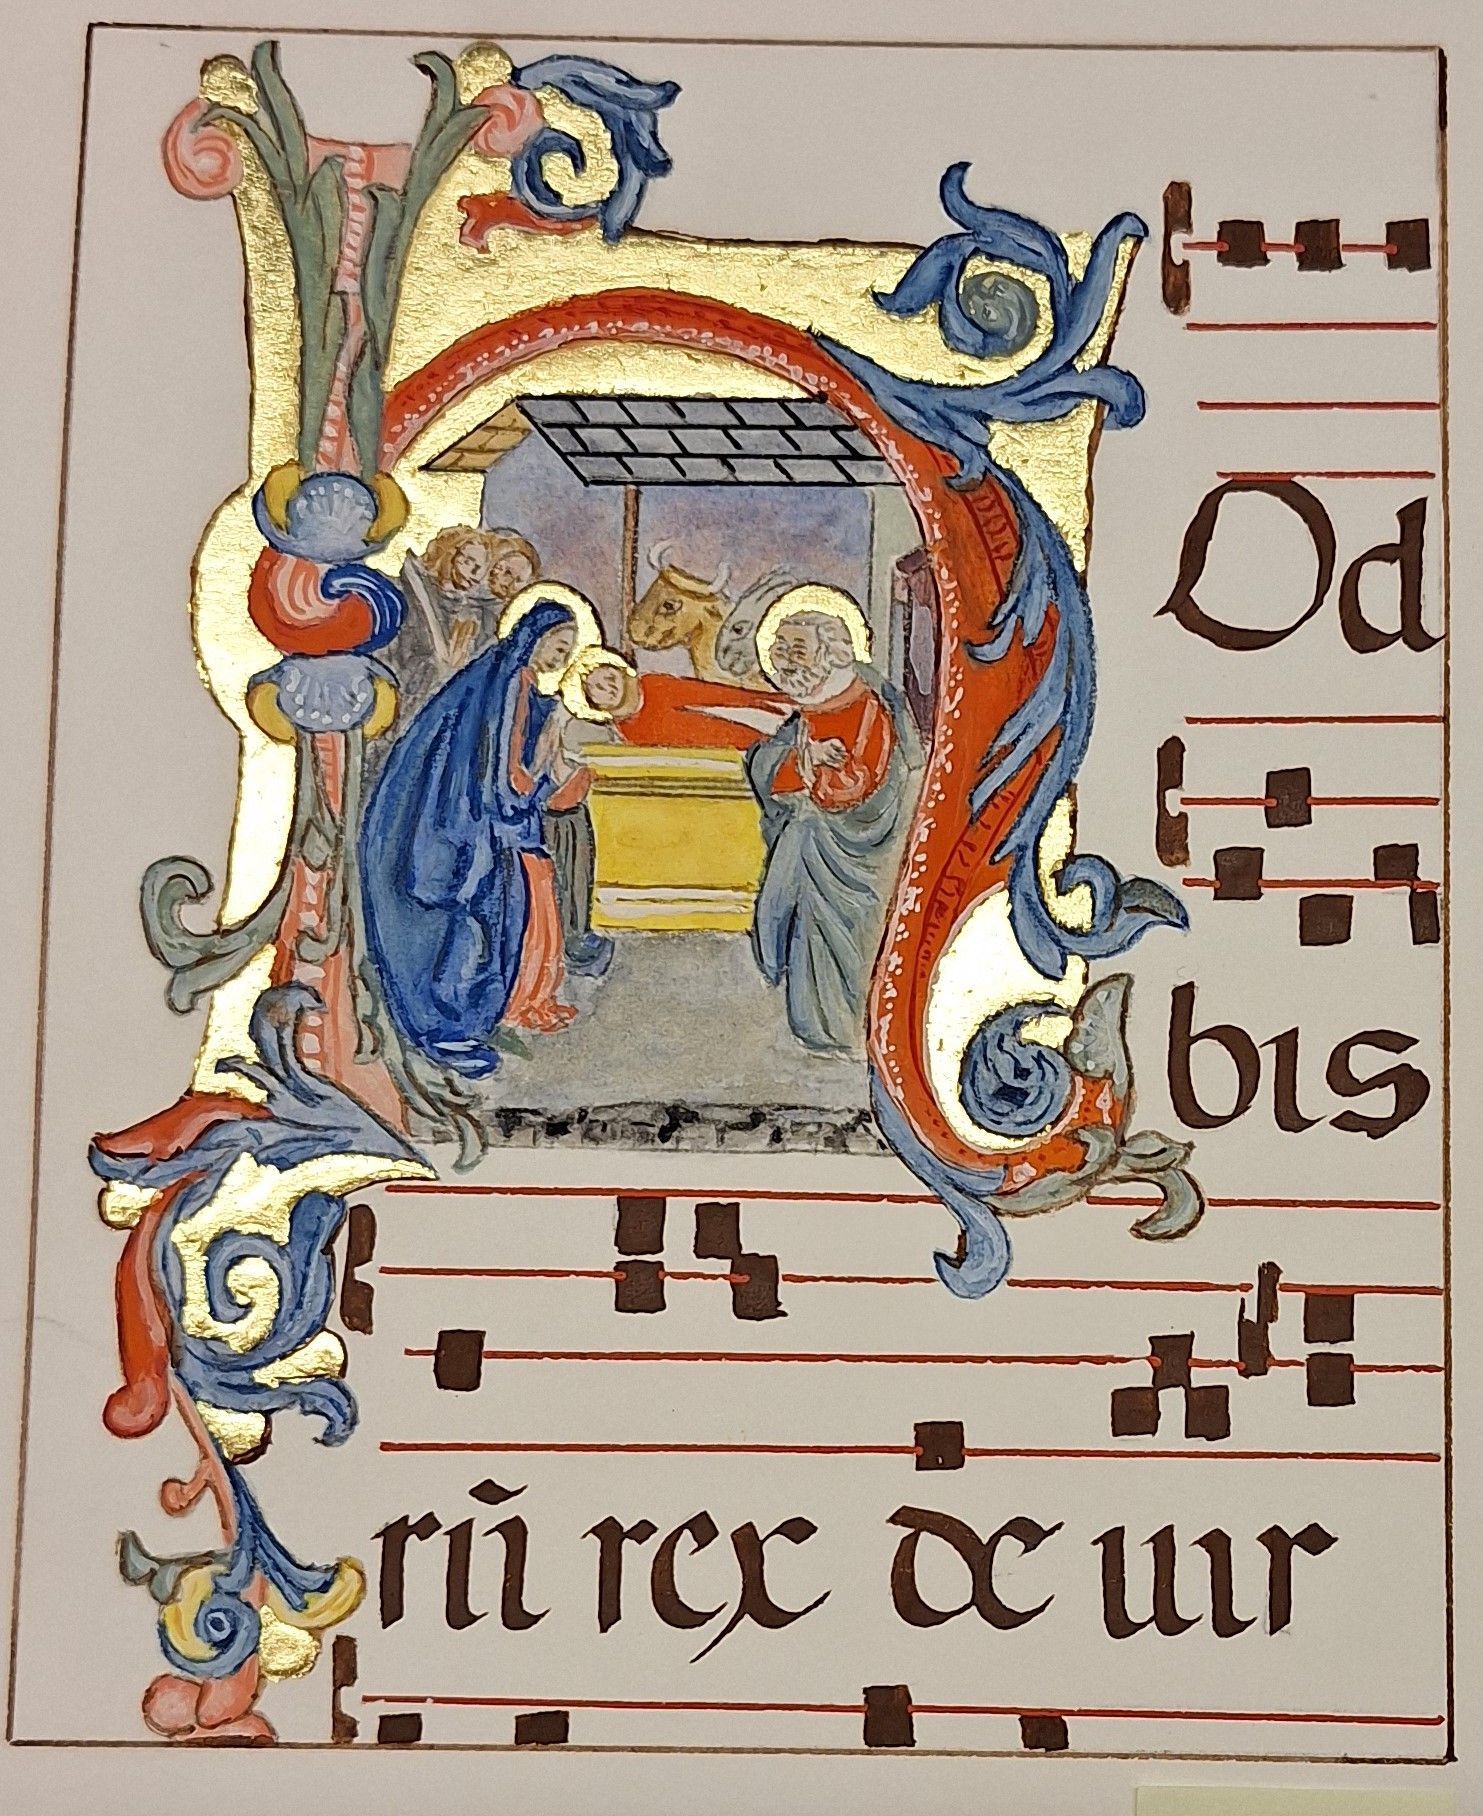 HOd
bis
rū rex de uir